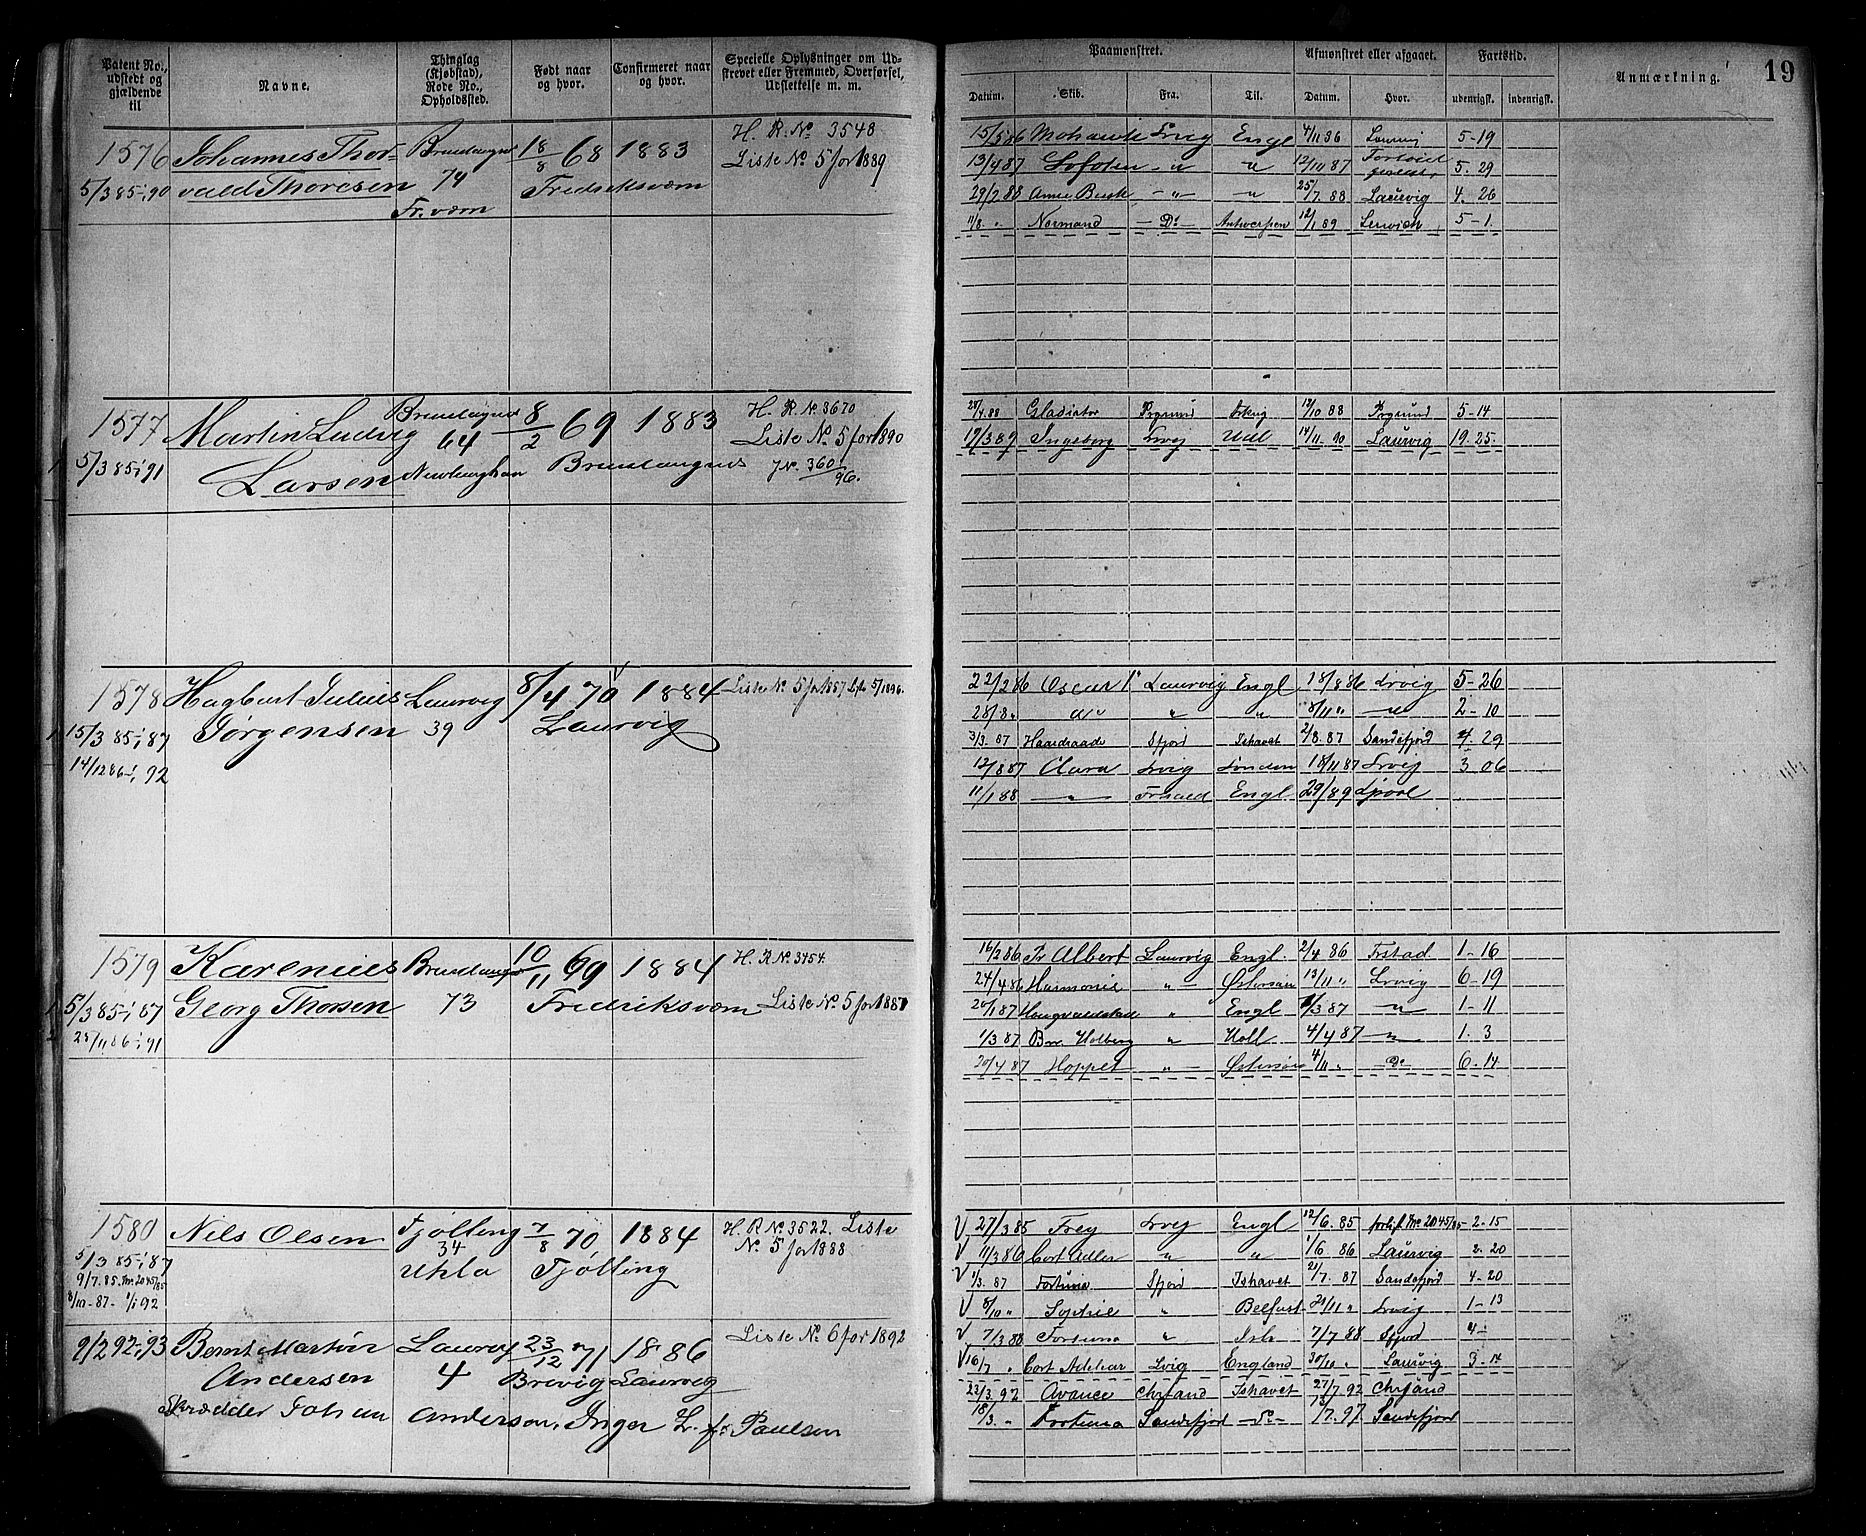 Patent No., udstedt og gjældende til
Navne.
Thinglag (Kjøbstad), Rode No., Opholdssted.
Født naar og hvor.
Confirmeret naar og hvor.
Specielle Oplysninger om Udskrevet eller Fremmed, Overførsel, Udslettelse m. m.
Paamønstret.
Afmønstret eller afgaaet.
Fartstid.
Anmærkning.
19
Datum. Skib. Fra. Til. Datum. Hvor. udenrigsk. indenrigsk.
1576 Johannes Thor- 18/8 68 1883 H. R. No 3548
5/3 85-i 90 vald Thoresen 74 Fredriksværn Liste No 5 for 1889
Fr.værn
15/5 86 Mohawk Lvig Engl 5-19
13/4 87 Lofoten - " " 12/11 87 5-29
29/2 88 - " - - " 25/7. 88 Laurvig 4. 26
11/8. " Normand - Do - Antwerpen 12/1 89 5-1.
1577 Martin Ludvig 8/2 69 1883 H. R. No 3670
64 Liste No 5 for 1890
5/3 85-i 91 Larsen JNo. 360/96.
28/4 88 Gladiator Prgrund 12/10 88 Prgrund 5-14
19/3 89 Ingeborg Lvej 14/11. 90 Laurvig 19. 25.
1578 Hagbart Julius Laurvig 8/4 70 1884 Liste No 5 for 1887
15/3 85-i 87 Jørgensen 39 Laurvig
14/12 86-i, 92
22/2 86 Oscar 1o Laurvig Engl 18/8 86 Lvig 5-26
28/8 " do " " 8/11 " - " 2-10
3/3. 87 Haardraade Sfjord Ishavet 2/8. 87 Sandefjord 4. 29
12/8 87 Clara Lvig London 18/11 87 Lvej 3 06
11/1 88 - " - Frstad Engl 29/1 89 Lpool
1579 Karenius 10/11 69 1884 H. R No. 3454
5/3 85-i 87 Georg Thorsen 73 Fredriksværn Liste No. 5 for 1887
25/11 86-i 91
16/2 86 Pr Albert Laurvig Engl. 2/4 86 Frstad 1-16
24/4 86 Harmonie " Østersøen 13/11 " Lrvig 6-19
20/1 87 " Engl /3 87 - " 1-11
1/3 87 Holberg " Holl 4/4 87 - " - 1. 3
20/4 87 Hoppet " Østersøen 4/11 " Do 6. 14
1580 Nils Olsen Tjølling 7/8 70 1884 H. R No 3522. Liste
34 No 5 for 1888
5/3 85-i 87 Ukla Tjølling
9/7. 85. No 2045/85
8/10-87- 1/1 92
V 27/3 85 Frey Lrvej Engl 12/6. 85 No 2045/85 2-15
V 11/3 86 Cort Adler " " 1/6 86 Laurvig 2. 20
V 1/3. 87 Fortuna Sfjord Ishavet 21/7. 87 Sandefjord 4-20
V 8/10 " Sophie " Belfast 21/11 " Lrvig 1-13
V 7/3 88 Fortuna " Ish 7/7 88 Sfjord 4-
V 16/7 " Cort Adelaar Lvig England 30/10 " Laurvig 3-14
9/2 92-i 93 Bernt Martin Laurvig 23/12 71 1886 Liste No 6 for 1892
Andersen 4 Brevig Laurvig
Skrædder Johan Anderson, Inger L. f. Paulsen
23/3. 92 Avance Chrsand Ishavet 27/7. 92 Chrsand
18/3. " Fortuna Sandefjord - do - 13/7. 97. Sandefjord